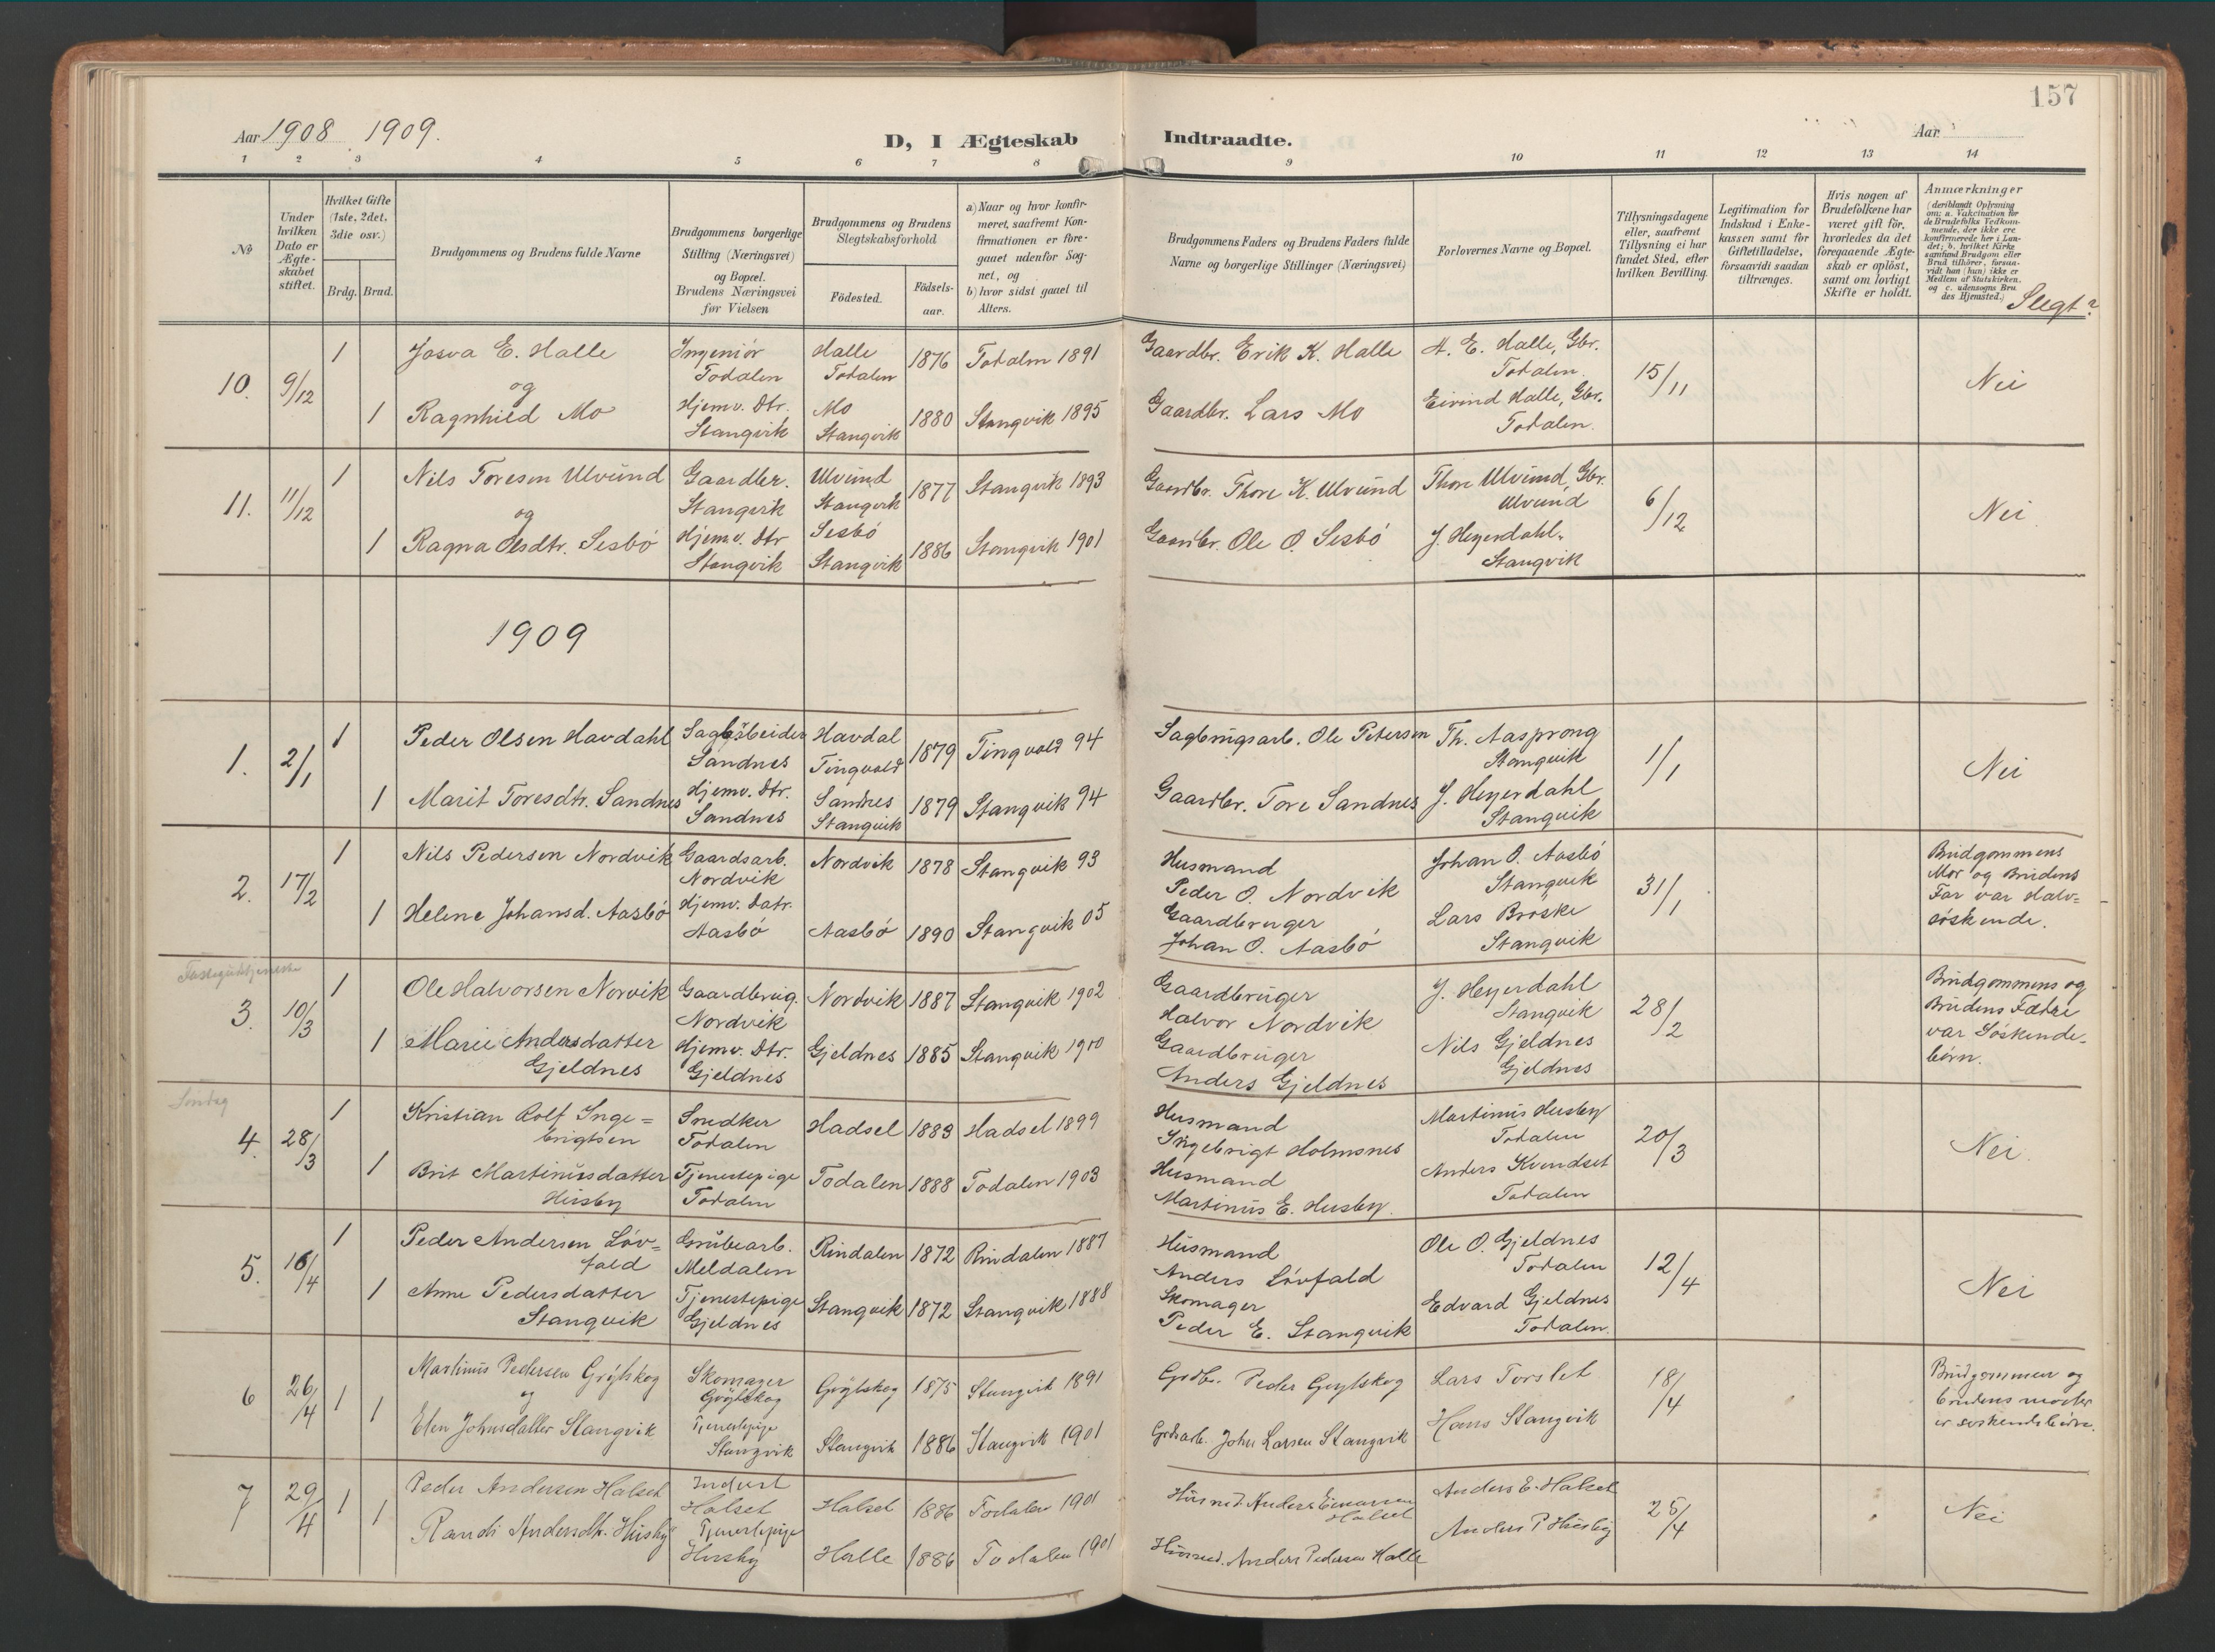 157
Aar 1908 1909.
D, I Ægteskab Indtraadte.
Aar
1 2 3 4 5 6 7 8 9 10 11 12 13 14
No
Under hvilken Dato er Ægteskabet stiftet.
Hvilket Gifte (1ste, 2det, 3die osv.)
Brdg. Brud.
Brudgommens og Brudens fulde Navne
Brudgommens borgerlige Stilling (Næringsvei) og Bopæl. Brudens Næringsvei før Vielsen
Brudgommens og Brudens Slegtskabsforhold
Födested. Födselsaar.
a) Naar og hvor konfirmeret, saafremt Konfirmationen er foregaaet udenfor Sognet, og
b) hvor sidst gaaet til Alters.
Brudgommens Faders og Brudens Faders fulde Navne og borgerlige Stillinger (Næringsvei)
Forlovernes Navne og Bopæl.
Tillysningsdagene eller, saafremt Tillysning ei har fundet Sted, efter hvilken Bevilling.
Legitimation for Indskud i Enkekassen samt for Giftetilladelse, forsaavidt saadan tiltrænges.
Hvis nogen af Brudefolkene har været gift för, hvorledes da det foregaaende Ægteskab er oplöst, samt om lovligt Skifte er holdt.
Anmærkninger (deriblandt Oplysning om: a. Vakcination for de Brudefolks Vedkommende, der ikke ere konfirmerede her i Landet; b. hvilket Kirkesamfund Brudgom eller Brud tilhörer, forsaavidt han (hun) ikke er Medlem af Statskirken. og c. udensogns Brudes Hjemsted.)
Slegt?
10. 9/12 1 Josva E. Halle Ingeniör Todalen Halle Todalen 1876 Todalen 1891 Gaardbr. Erik K. Halle A. E. Halle, Gbr. Todalen. 15/11 Nei
og
1 Ragnhild Mo Hjemv. Dtr. Stangvik Mo Stangvik 1880 Stangvik 1895 Gaardbr. Lars Mo Eivind Halle, Gbr. Todalen.
11. 11/12 1 Nils Toresen Ulvund Gaardbr. Stangvik Ulvund Stangvik 1877 Stangvik 1893 Gaardbr. Thore K. Ulvund Thore Ulvund, Gbr. Ulvund 6/12 Nei
og
1 Ragna Olsdtr. Sesbö Hjemv. Dtr Stangvik Sesbö Stangvik 1886 Stangvik 1901 Gaardbr. Ole O. Sesbö J. Heyerdahl. Stangvik
1909
1. 2/1 1 Peder Olsen Havdahl Sandnes Havdal Tingvold 1879 Tingvold 94 Sagbrugsarb. Ole Petersen Th. Aasprong Stangvik 1/1 Nei
1 Marit Toresdtr. Sandnes Hjemv. Dtr. Sandnes Sandnes Stangvik 1879 Stangvik 94 Gaardbr. Tore Sandnes J. Heyerdahl Stangvik
2. 17/2 1 Nils Pedersen Nordvik Gaardsarb. Nordvik Nordvik 1878 Stangvik 93 Husmand Peder O. Nordvik Johan O. Aasbö Stangvik 31/1 Brudgommens Mor og Brudens Far var Halvsöskende.
1 Helene Johansd. Aasbö Hjemv. Datr. Aasbö Aasbö 1890 Stangvik 05 Gaardbruger Johan O. Aasbö Lars Bröske Stangvik
Fastegudstjeneste
3. 10/3 1 Ole Halvorsen Norvik Gaardbrug. Nordvik Nordvik 1887 Stangvik 1902 Gaardbruger Halvor Nordvik J. Heyerdahl Stangvik 28/2 Brudgommens og Brudens Fædre var Söskendebörn.
1 Marie Andersdatter Gjeldnes Hjemv. Dtr. Gjeldnes Gjeldnes 1885 Stangvik 1900 Gaardbruger Anders Gjeldnes Nils Gjeldnes Gjeldnes
Söndag
4. 28/3 1 Kristian Rolf Inge=brigtsen Snedker Todalen Hadsel 1883 Hadsel 1899 Husmand Ingebrigt Holmsnes Martinus Husby Todalen 20/3 Nei.
1 Brit Martinusdatter Husby Tjenestepige Todalen Todalen 1888 Todalen 1903 Husmand Martinus E. Husby. Anders Kvendset Todalen
5. 16/4 1 Peder Andersen Löv=fald Grubearb. Meldalen Rindalen 1872 Rindalen 1887 Husmand Anders Lövfald Ole O. Gjeldnes Todalen 12/4 Nei
1 Anne Pedersdatter Stangvik Tjenestepige Gjeldnes Stangvik 1872 Stangvik 1888 Skomager Peder E. Stangvik Edvard Gjeldnes Todalen.
6 26/4 1 Martinus Pedersen Gröjtskog Skomager Gröjtskog 1875 Stangvik 1891 Grdbr. Peder Lars Torslet 18/4 Brudgommen og brudens moder er söskendebörn.
og
1 Elen Johnsdatter Stangvik Tjenestepige Stangvik Stangvik 1886 Stangvik 1901 Grdsarb. John Larsen Stangvik Hans Stangvik
7 29/4 1 Peder Andersen Halset Inderst Halset Halset 1886 Todalen 1901 Husmd. Anders Einarsen Halset Anders E. Halset 25/4 Nei
1 Randi Andersdtr. Husby Tjenestepige Husby Halle 1886 Todalen 1901 Husmd. Anders Pedersen Halle Anders P Husby